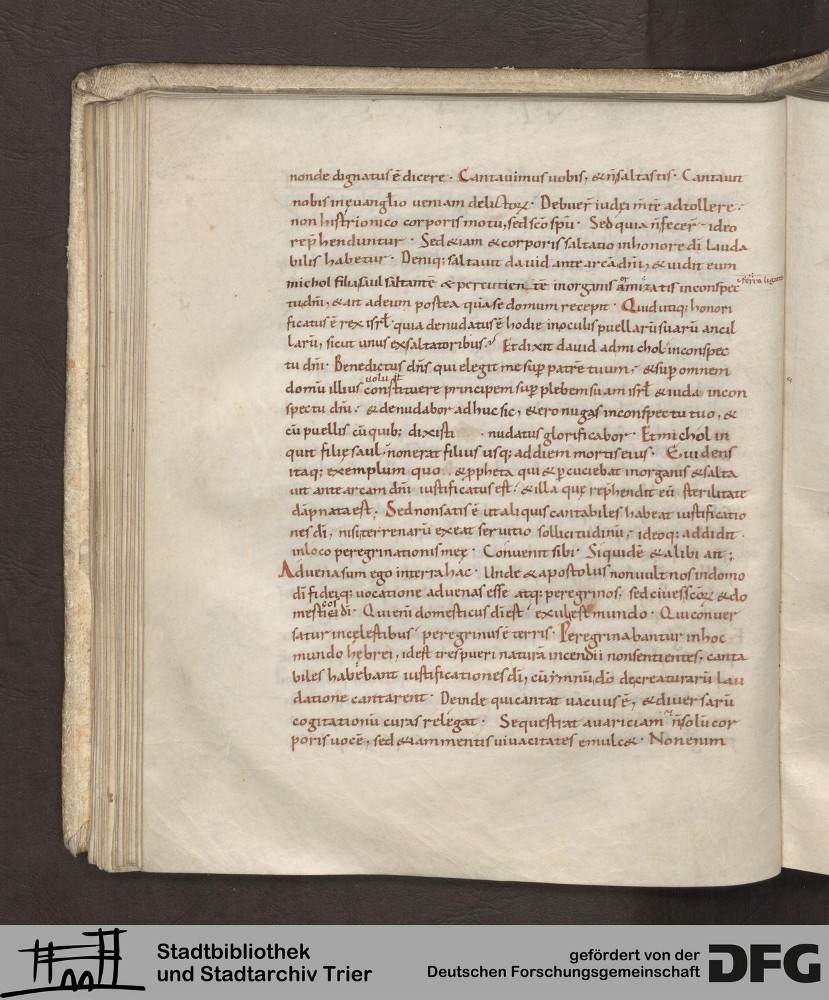 nonde dignatus ē dicere · Cantauimus uobis, & ñ saltastis · Cantauit
nobis in euanglio ueniam delictoꝝ · Debuer̄ iudei m̄te adtollere ·
non histrionico corporis motu, sed sc̄o spū · Sed quia ñ fecer̄ ideo
rep̄henduntur · Sed &iam & corporis saltatio in honore dī lauda
bilis habetur · Deniq; saltauit dauid ante arcā dn̄i, & uidit eum
michol filia saul saltantē & percutientē in organis armizatis in conspec
tu dn̄i, & ait ad eum postea quā se domum recepit · Quid utiq; honori
ficatus ē rex isrl̄ quia denudatus ē hodie in oculis puellarū suarū ancil
larū, sicut unus ex saltatoribus? Et dixit dauid ad michol in conspec
tu dn̄i · Benedictus dn̄s qui elegit me sup patrē tuum, & sup omnem
uoluit
domū illius constituere principem sup plebem suam isrl̄ & iuda in con
spectu dn̄i · & denudabor adhuc sic, & ero nugas in conspectu tuo, &
cū puellis cū quib; dixisti · nudatus glorificabor · Et michol in
quit filię saul non erat filius usq; ad diem mortis eius · Euidens
itaq; exemplum quo & ppheta qui & pcuciebat in organis & salta
uit ante arcam dn̄i iustificatus est · & illa quę rep̄hendit eū sterilitate
dāpnata est · Sed non satis ē ut aliquis cantabiles habeat iustificatio
nes dī, nisi terrenarū exeat seruitio sollicitudinū, ideoq; addidit ·
in loco peregrinationis meę · Conuenit sibi · Siquidē & alibi ait ;
Aduena sum ego in terra hac · Unde & apostolus non uult nos in domo
dī fideiq; uocatione aduenas esse atq; peregrinos, sed ciues sc̄oꝝ & do
mesticos dī · Qui enī domesticus dī est exul est mundo · Qui conuer
satur in cęlestibus peregrinus ē terris · Peregrinabantur in hoc
mundo hębrei, id est tres pueri naturā incendii non sentientes, canta
biles habebant iustificationes dī, cū ymnū dō de creaturarū lau
datione cantarent · Deinde qui cantat uacuus ē, & diuersarū
cogitationū curas relegat · Sequestrat auariciam ñ solū cor
poris uocē, sed &iam mentis uiuacitates emulc& · Non enim
Stadtbibliothek
und Stadtarchiv Trier
gefördert von der
Deutschen Forschungsgemeinschaft
DFG